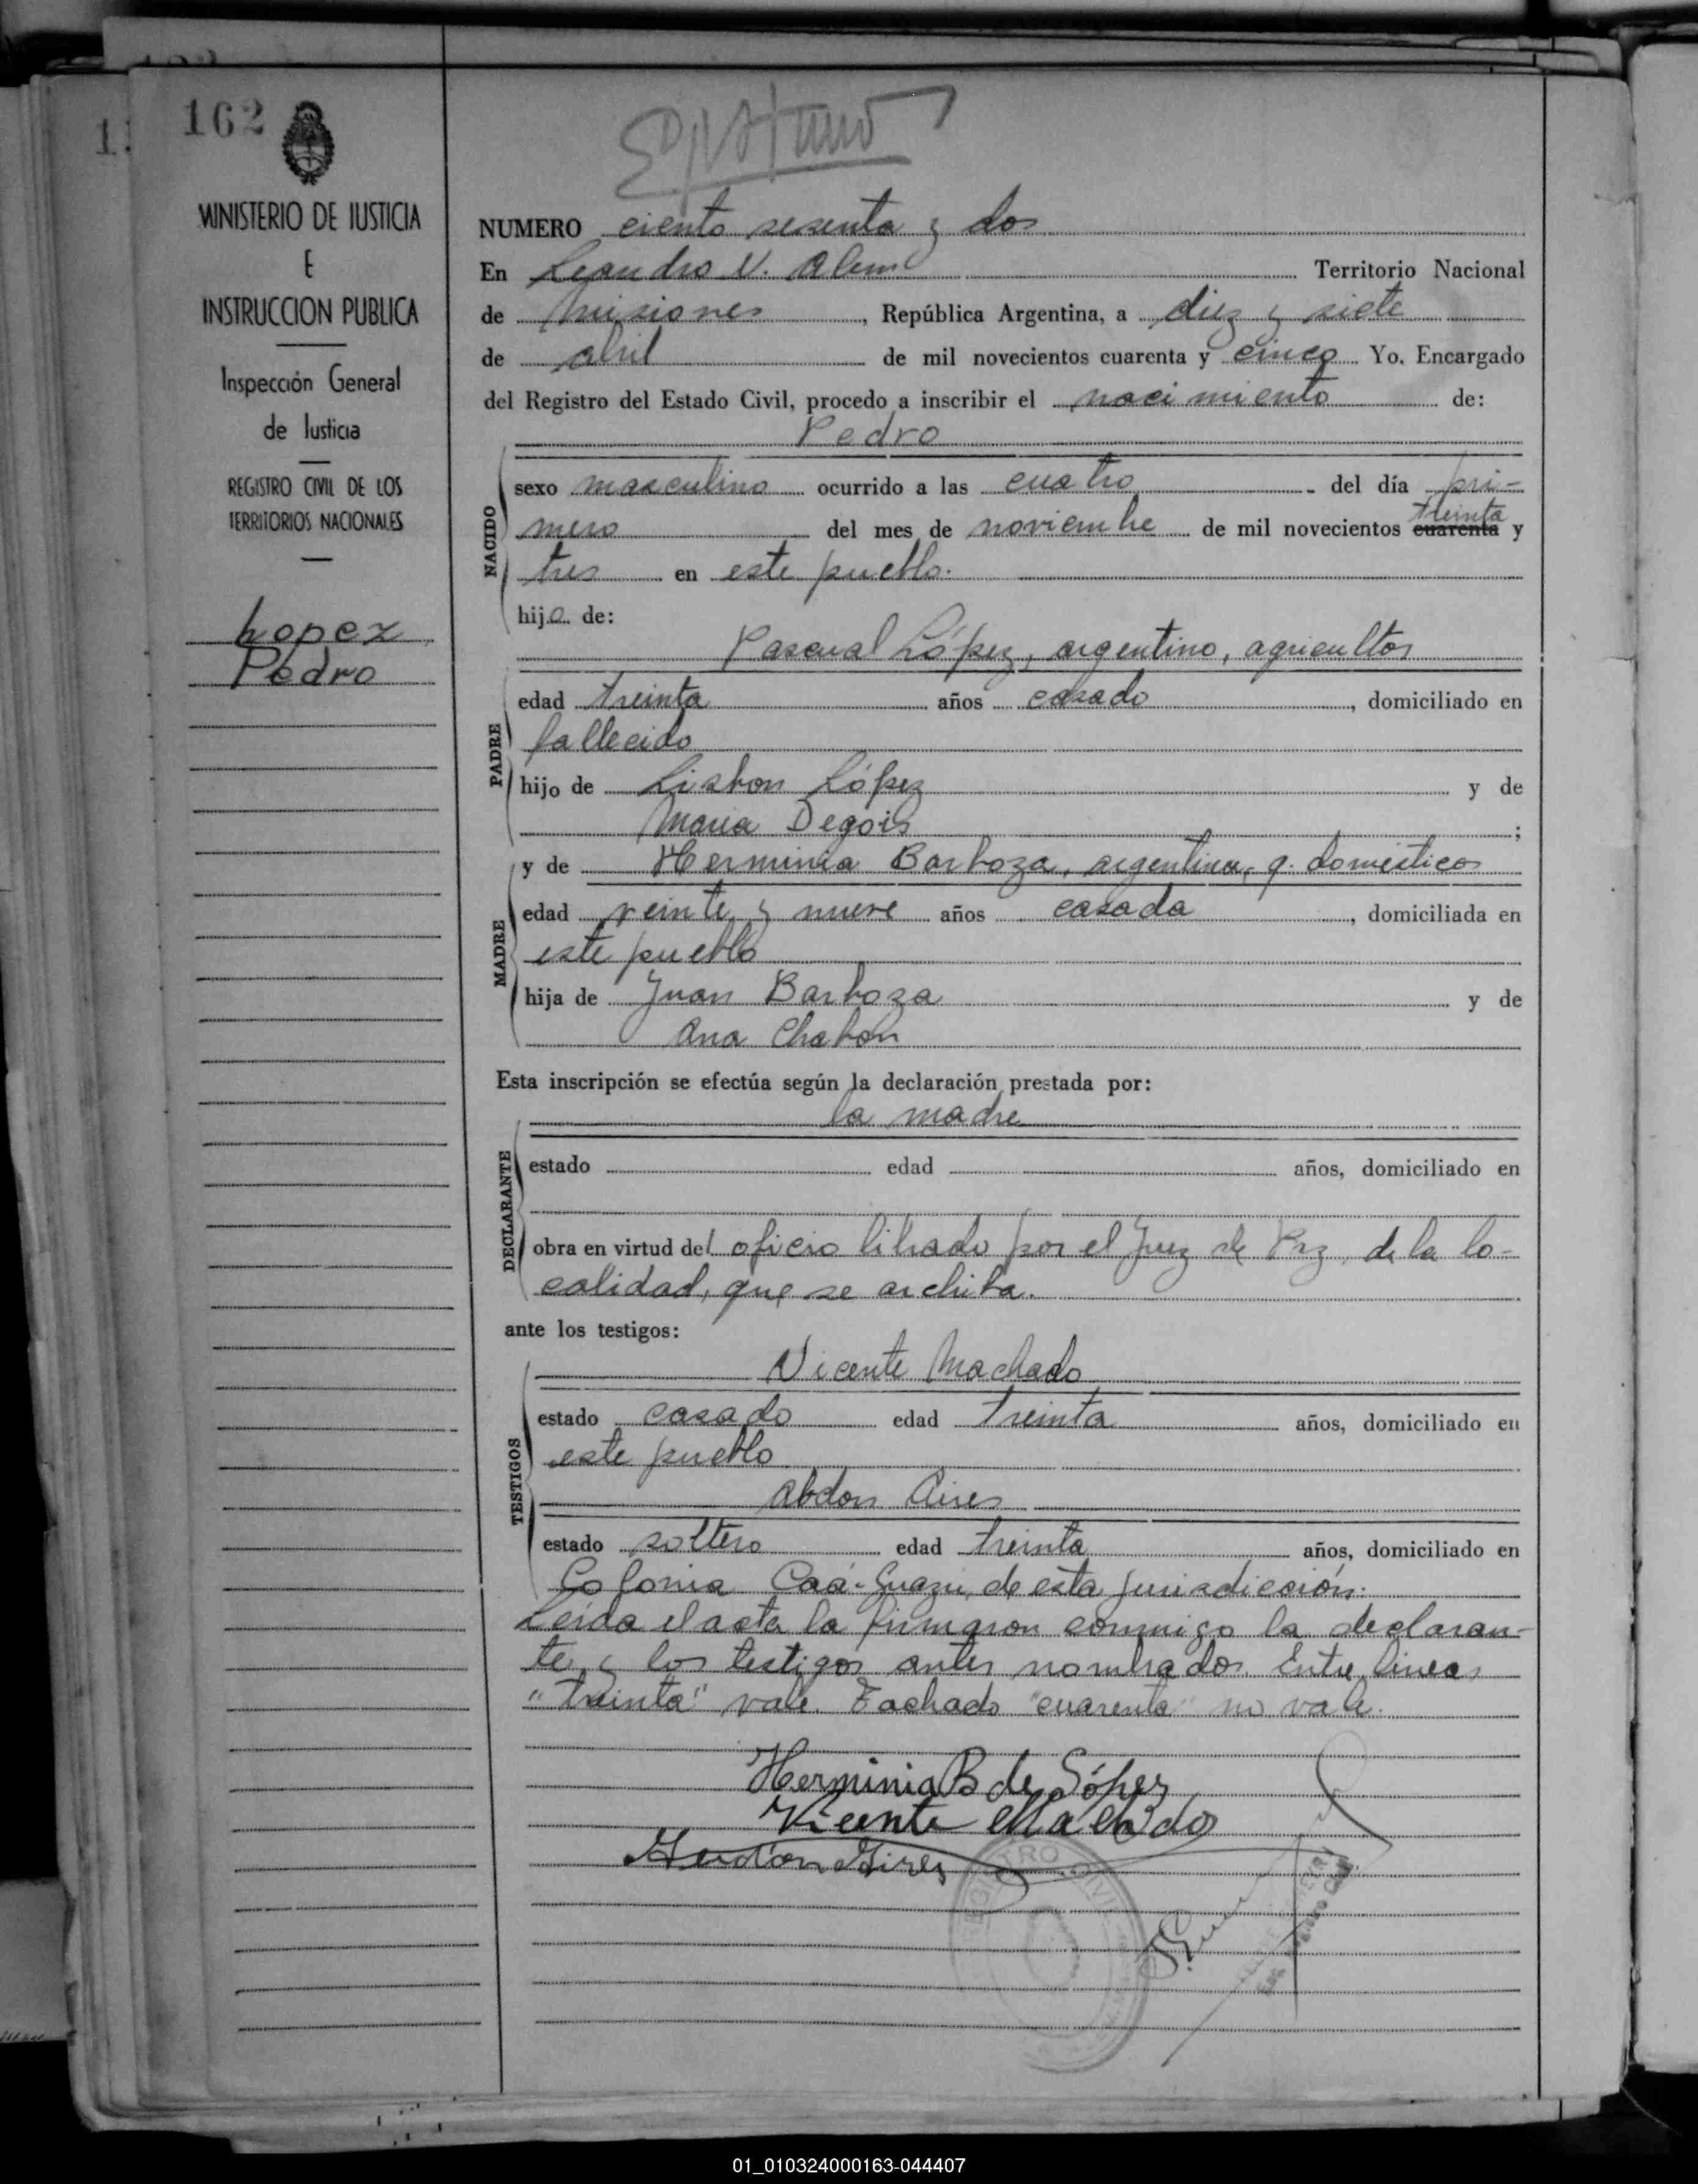 162
MINISTERIO DE JUSTICIA
E
INSTRUCCION PUBLICA
Inspección General
de Justicia
REGISTRO CIVIL DE LOS
TERRITORIOS NACIONALES
Lopez
Pedro
NUMERO ciento sesenta y dos
En Leandro N. Alem Territorio Nacional
de Misiones, República Argentina, a diez y siete
de abril de mil novecientos cuarenta y cinco Yo, Encargado
del Registro del Estado Civil, procedo a inscribir el nacimiento de:
Pedro
NACIDO
sexo masculino ocurrido a las cuatro del día pri-
mero del mes de noviembre de mil novecientos cuarenta treinta y
tres en este pueblo.
hijo de:
Pascual López, argentino, agricultor
PADRE
edad treinta años casado, domiciliado en
fallecido
hijo de Lisbon López y de
Maria Degois;
y de Herminia Barboza, argentina, q. domésticos
MADRE
edad veinte y nueve años casada, domiciliada en
este pueblo
hija de Juan Barboza y de
Ana Chabon
Esta inscripción se efectúa según la declaración prestada por:
la madre
DECLARANTE
estado edad años, domiciliado en
obra en virtud del oficio librado por el Juez de Paz, de la lo-
calidad, que se archiba.
ante los testigos:
Vicente Machado
TESTIGOS
estado casado edad treinta años, domiciliado en
este pueblo
Abdon Aires
estado soltero edad treinta años, domiciliado en
Colonia Caá-Guazú, de esta jurisdicción.
Leída el acta la firmaron conmigo la declaran-
te y los testigos antes nombrados. Entre lineas
"treinta" vale. Tachado "cuarenta" no vale.
Herminia B de López
Vicente Machado
Aires
REGISTRO CIVIL
01_010324000163-044407